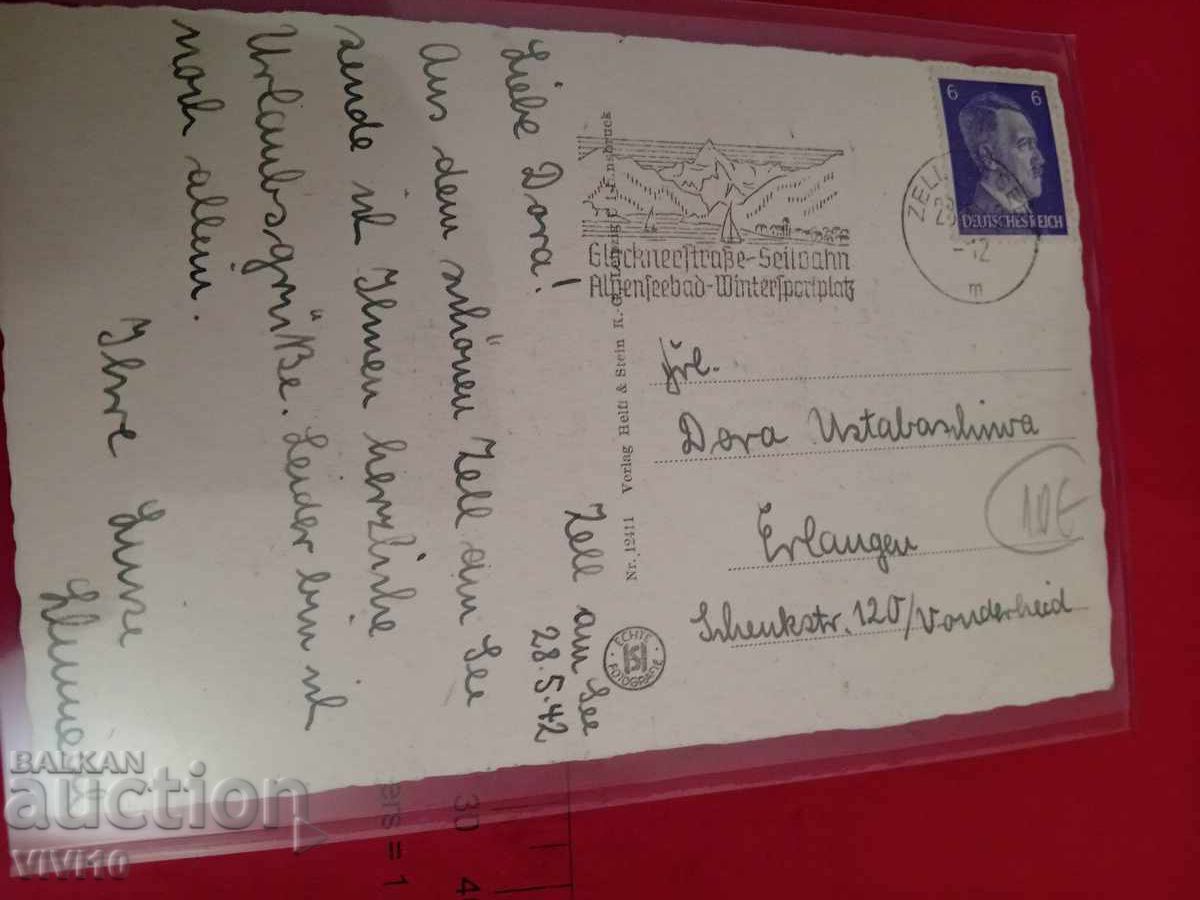 Zell am See
28.5.42
Liebe Dora!
Aus dem schönen Zell am See
sende ich Ihnen herzliche
Urlaubsgrüße. Leider bin ich
noch allein.
Ihre Luise
Nr. 12411 Verlag Helff & Stein K.-G. Leipzig Innsbruck
ECHTE FOTOGRAFIE
6 6
DEUTSCHES REICH
ZELL
-12
m
Glocknerstraße-Seilbahn
Alpenseebad-Wintersportplatz
Frl.
Dora Ustabaschiwa
Erlangen
Schenkstr. 120/Vonderheid
10€
ers = 1
30 4
BALKAN
auction
VIVI10